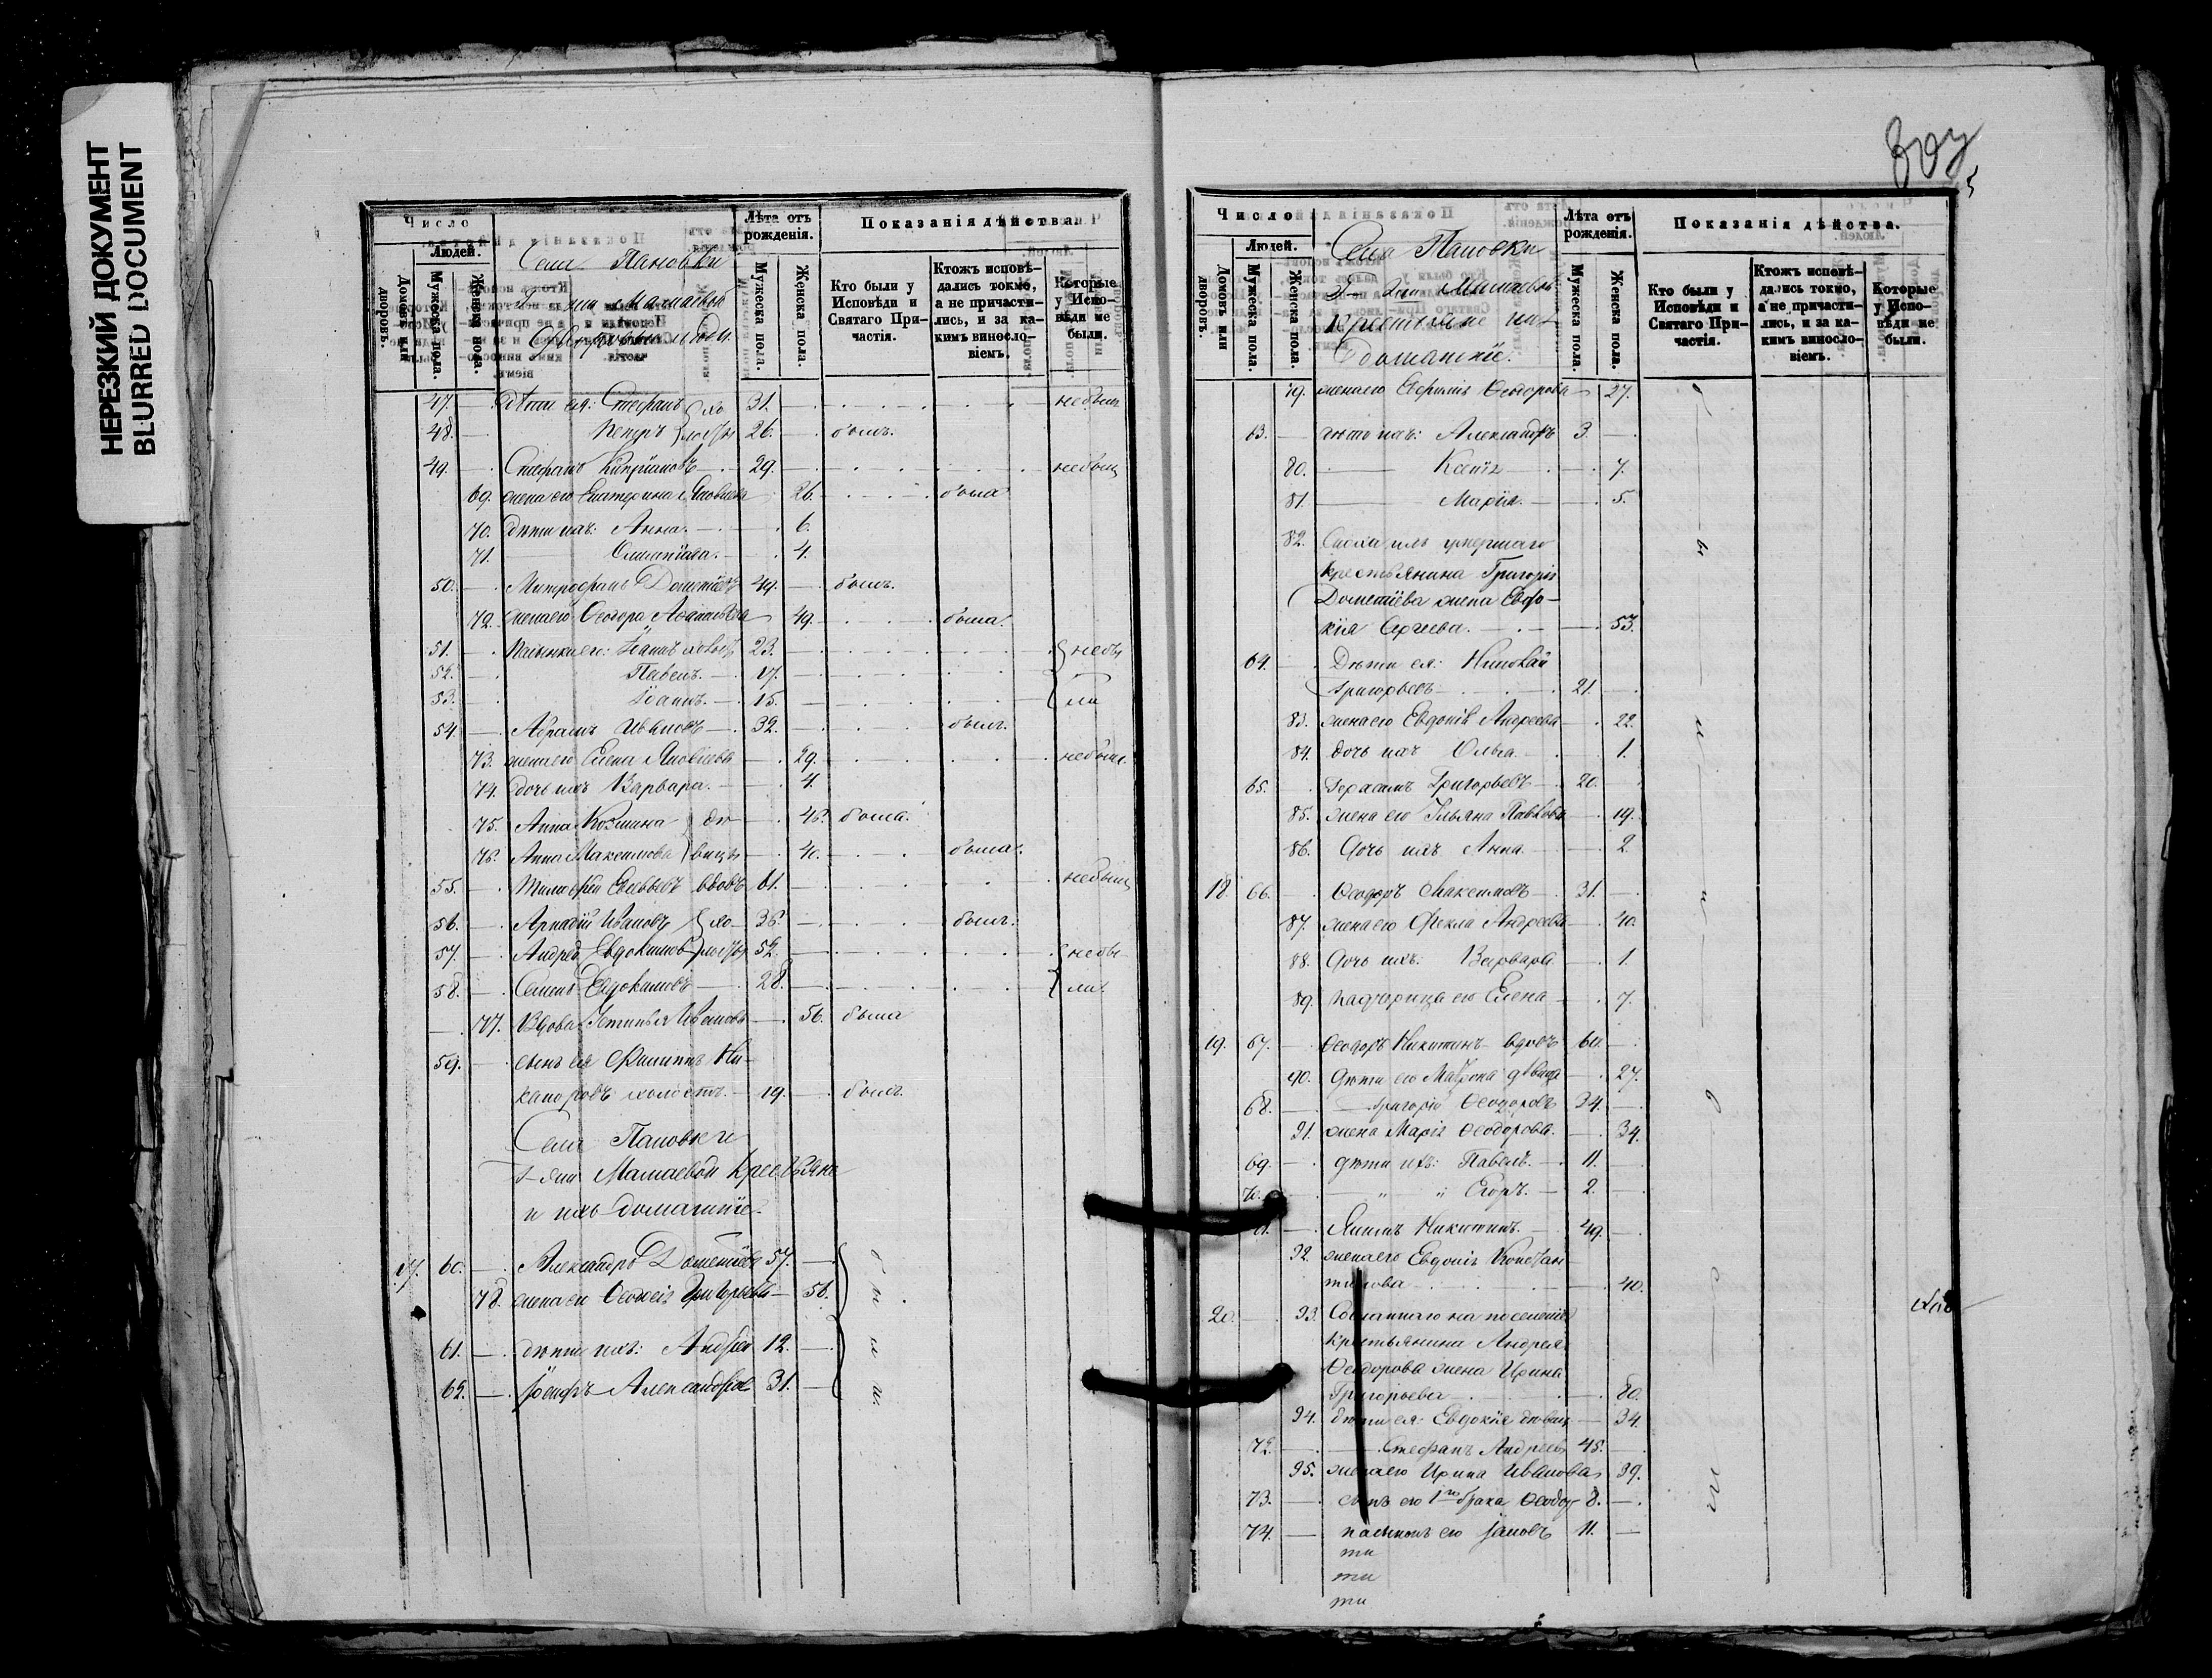 НЕРЕЗКИЙ ДОКУМЕНТ
BLURRED DOCUMENT
Число
Людей.
Домовъ или дворовъ.
Мужеска пола.
Женска пола.
Села Пановки
Г-жи Мамаевой
Лѣта отъ рожденія.
Мужеска пола.
Женска пола.
Показанія дѣйства.
Кто были у Исповѣди и Святаго Причастія.
Ктожъ исповѣдались токмо, а не причастились, и за какимъ винословіемъ.
Которые у Исповѣди не были.
47. — дѣти ея: Стефанъ } хо 31. —
48. — Петръ } лосты 26. — былъ.
49. — Стефанъ Кипріяновъ — 29. —
69. жена его Екатерина Яковлева 26. была
70. дѣти ихъ: Анна. — 6.
71. Олимпіада. 4.
50. — Митрофанъ Дометіевъ 49. — былъ.
72. жена его Ѳеодора 49. была.
51. — Пасынки его: Іоаннъ 23. —
52. — Павелъ. — 17. —
53. — Іоаннъ. — 15. —
54. — Абрамъ Ивановъ — 32. — былъ.
73. жена его Елена Яковлева — 29.
74. дочь ихъ Варвара. — 4.
75. Анна Козмина } дѣ — 46. была.
76. Анна Максимова } вицы — 40. была.
55. — вдовъ 61. —
56. — Аркадій Ивановъ } хо — 36. — былъ.
57. — Андрей Евдокимовъ } лосты 52. — } небы
58. — Семенъ Евдокимовъ — 28. — } ли.
77. Вдова Устинья Иванова — 56. была
59. — сынъ ея Филиппъ Ни-
каноровъ холостъ. — 19. — былъ.
Села Пановки
Г-жи Мамаевой Крестьяне
и ихъ домашніе.
17. 60. — Александръ Дометіевъ 57. —
78. жена его Ѳеодосія Григорьева — 56.
61. — дѣти ихъ: Андрей 12. —
62. — Іосифъ Александровъ 31. —
были.
5
Число
Людей.
Домовъ или дворовъ.
Мужеска пола.
Женска пола.
Села Пановки
Г-жи Мамаевой
Крестьяне и их
домашніе.
Лѣта отъ рожденія.
Мужеска пола.
Женска пола.
Показанія дѣйства.
Кто были у Исповѣди и Святаго Причастія.
Ктожъ исповѣдались токмо, а не причастились, и за какимъ винословіемъ.
Которые у Исповѣди не были.
79. жена его Ѳеодорова — 27.
63. — дѣти ихъ: Александръ 3. —
80. — Ксенія — 7.
81. — Марія. — 5.
82. Сноха ихъ умершаго
Крестьянина Григорія
Дометіева жена Евдо-
кія Сергеева. — 53.
64. — Дѣти ея: Николай
Григорьевъ — 21. —
83. жена его Евдокія Андреева — 22.
84. дочь ихъ Ольга. 1.
65. — Герасимъ Григорьевъ — 20. —
85. жена его Ульяна Павлова — 19.
86. Дочь ихъ Анна. — 2
18. 66. — Ѳеодоръ Максимовъ — 31. —
87. жена его Ѳекла Андреева — 40.
88. Дочь ихъ: Варвара — 1.
89. Падчерица его Елена — 7.
19. 67. — Ѳеодоръ Никитинъ вдовъ 60. —
90. Дѣти его Матрона дѣвица — 27.
68. — Григорій Ѳеодоровъ 34. —
91. жена Марія Ѳеодорова. — 34.
69. — дѣти ихъ: Павелъ. — 11. —
70. — " " Егоръ. — 2. —
71. — Никитинъ. — 49. —
92. жена его Евдокія Констан
тинова — 40.
20. — 93. Сосланнаго на поселеніе
Крестьянина Андрея
Ѳеодорова жена Ирина
Григорьева — 60.
94. дѣти ея: Евдокія дѣвица — 34.
72. — Стефанъ Андреевъ 45. —
95. жена его Ирина Иванова 39.
73. — сынъ его 1го брака Ѳеодоръ 8. —
74. — пасынокъ его Іаковъ 11. —
ти
ти
ти